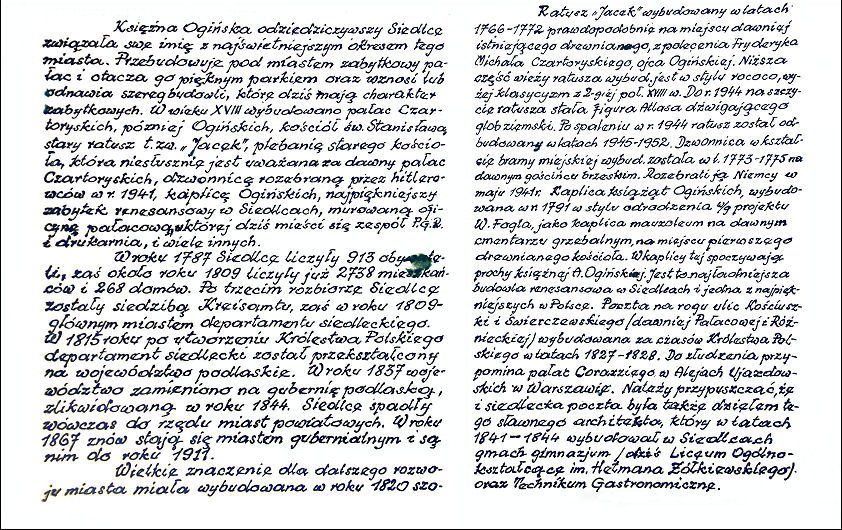 Księżna Ogińska odziedziczywszy Siedlce
związała swe imię z najświetniejszym okresem tego
miasta. Przebudowuje pod miastem zabytkowy pa-
łac i otacza go pięknym parkiem oraz wznosi lub
odnawia szereg budowli, które dziś mają charakter
zabytkowych. W wieku XVIII wybudowano pałac Czar-
toryskich, później Ogińskich, kościół św. Stanisława,
stary ratusz t.zw. „Jacek", plebanię starego kościo-
ła, która niesłusznie jest uważana za dawny pałac
Czartoryskich, dzwonnicę rozebraną przez hitlero-
wców w r. 1941, kaplicę Ogińskich, najpiękniejszy
zabytek renesansowy w Siedlcach, murowaną ofi-
cynę pałacową, w której dziś mieści się zespół P.G.R.
i drukarnia, i wiele innych.
W roku 1787 Siedlce liczyły 913 obywate-
li, zaś około roku 1809 liczyły już 2738 mieszkań-
ców i 268 domów. Po trzecim rozbiorze Siedlce
zostały siedzibą Kreisamtu, zaś w roku 1809-
głównym miastem departamentu siedleckiego.
W 1815 roku po utworzeniu Królestwa Polskiego
departament siedlecki został przekształcony
na województwo podlaskie. W roku 1837 woje-
wództwo zamieniono na gubernię podlaską,
zlikwidowaną w roku 1844. Siedlce spadły
wówczas do rzędu miast powiatowych. W roku
1867 znów stają się miastem gubernialnym i są
nim do roku 1911.
Wielkie znaczenie dla dalszego rozwo-
ju miasta miała wybudowana w roku 1820 szo-
Ratusz „Jacek" wybudowany w latach
1766-1772 prawdopodobnie na miejscu dawniej
istniejącego drewnianego, z polecenia Fryderyka
Michała Czartoryskiego, ojca Ogińskiej. Niższa
część wieży ratusza wybud. jest w stylu rococo, wy-
żej klasycyzm z 2-giej poł. XVIII w. Do r. 1944 na szczy-
cie ratusza stała figura Atlasa dźwigającego
glob ziemski. Po spaleniu w r. 1944 ratusz został od-
budowany w latach 1946-1952. Dzwonnica w kształ-
cie bramy miejskiej wybud. została w l. 1773-1775 na
dawnym gościńcu brzeskim. Rozebrali ją Niemcy w
maju 1941r. Kaplica książąt Ogińskich, wybudo-
wana w r. 1791 w stylu odrodzenia w/g projektu
W. Fogla, jako kaplica mauzoleum na dawnym
cmentarzu grzebalnym, na miejscu pierwszego
drewnianego kościoła. W kaplicy tej spoczywają
prochy księżnej A. Ogińskiej. Jest to najładniejsza
budowla renesansowa w Siedlcach i jedna z najpięk-
niejszych w Polsce. Poczta na rogu ulic Kościusz-
ki i Świerczewskiego /dawniej Pałacowej i Róż-
nieckiej/ wybudowana za czasów Królestwa Pol-
skiego w latach 1827-1828. Do złudzenia przy-
pomina pałac Corazziego w Alejach Ujazdow-
skich w Warszawie. Należy przypuszczać, że
i siedlecka poczta była także dziełem te-
go sławnego architekta, który w latach
1841-1844 wybudował w Siedlcach
gmach gimnazjum /dziś Liceum Ogólno-
kształcące im. Hetmana Żółkiewskiego/.
oraz Technikum Gastronomiczne.